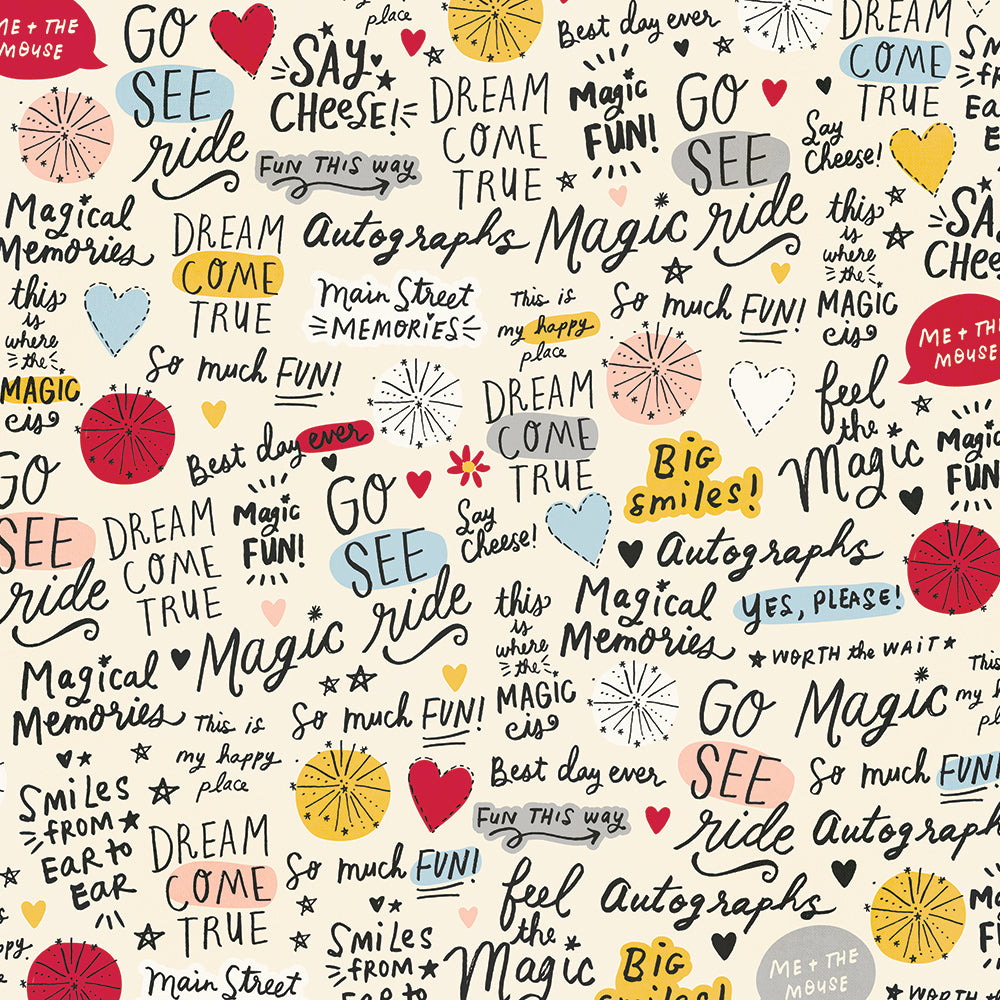 ME + THE
MOUSE
GO
SEE
ride
SAY
CHEESE!
place
Best day ever
DREAM
COME
TRUE
FUN THIS way
DREAM
COME
TRUE
Magic
FUN!
GO
SEE
ride
Say
Cheese!
SM
FROM
Ea
E
Magical
Memories
DREAM
COME
TRUE
Autographs
Magic
this
is
where
the
MAGIC
is
SA
CHEE
this
is
where
the
MAGIC
is
Main Street
MEMORIES
This is
my happy
place
So much FUN!
ME + THE
MOUSE
So much FUN!
DREAM
COME
TRUE
feel
the
Magic
Magic
FUN
Best day ever
BIG
smiles!
GO
SEE
ride
DREAM
COME
TRUE
Magic
FUN!
GO
SEE
ride
Say
Cheese!
Autographs
this
is
where
the
MAGIC
is
Magical
Memories
YES, PLEASE!
WORTH the WAIT
Magic
Magical
Memories
This is
my happy
place
So much FUN!
GO
SEE
ride
Magic
This
my h
pl
Best day ever
So much FUN!
SMILES
FROM
EAR to
EAR
DREAM
COME
TRUE
FUN THIS way
Autograph
So much FUN!
feel
the
Magic
Autographs
ppy
SMILES
FROM
EAR to
Main Street
BIG
smiles!
ME + THE
MOUSE
M
F
WORTH the